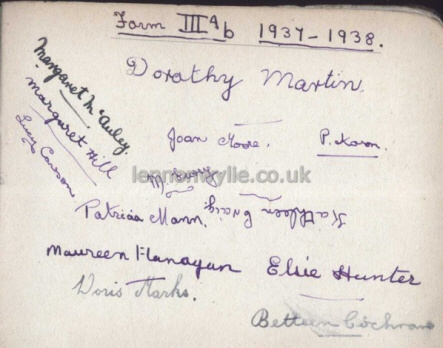 Form III Ab 1937-1938.
Dorothy Martin.
Margaret McAuley.
Margaret Hill
Lucy Cowson
Joan Moore.
P. Koron.
lennonwylie.co.uk
Kathleen Craig.
Patricia Mann.
Maureen Flanagan
Elsie Hunter
Doris Marks.
Betteen Cochrane